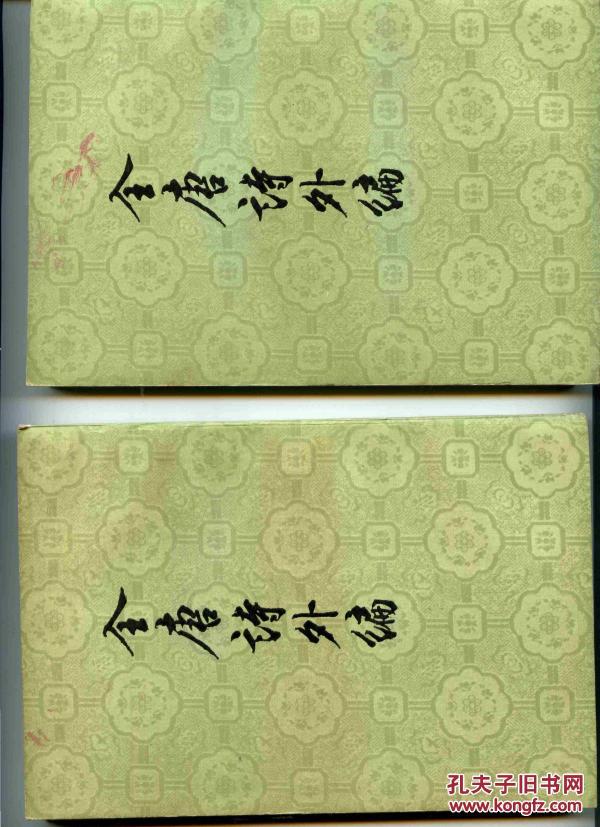 全唐诗外编
全唐诗外编
孔夫子旧书网
www.kongfz.com